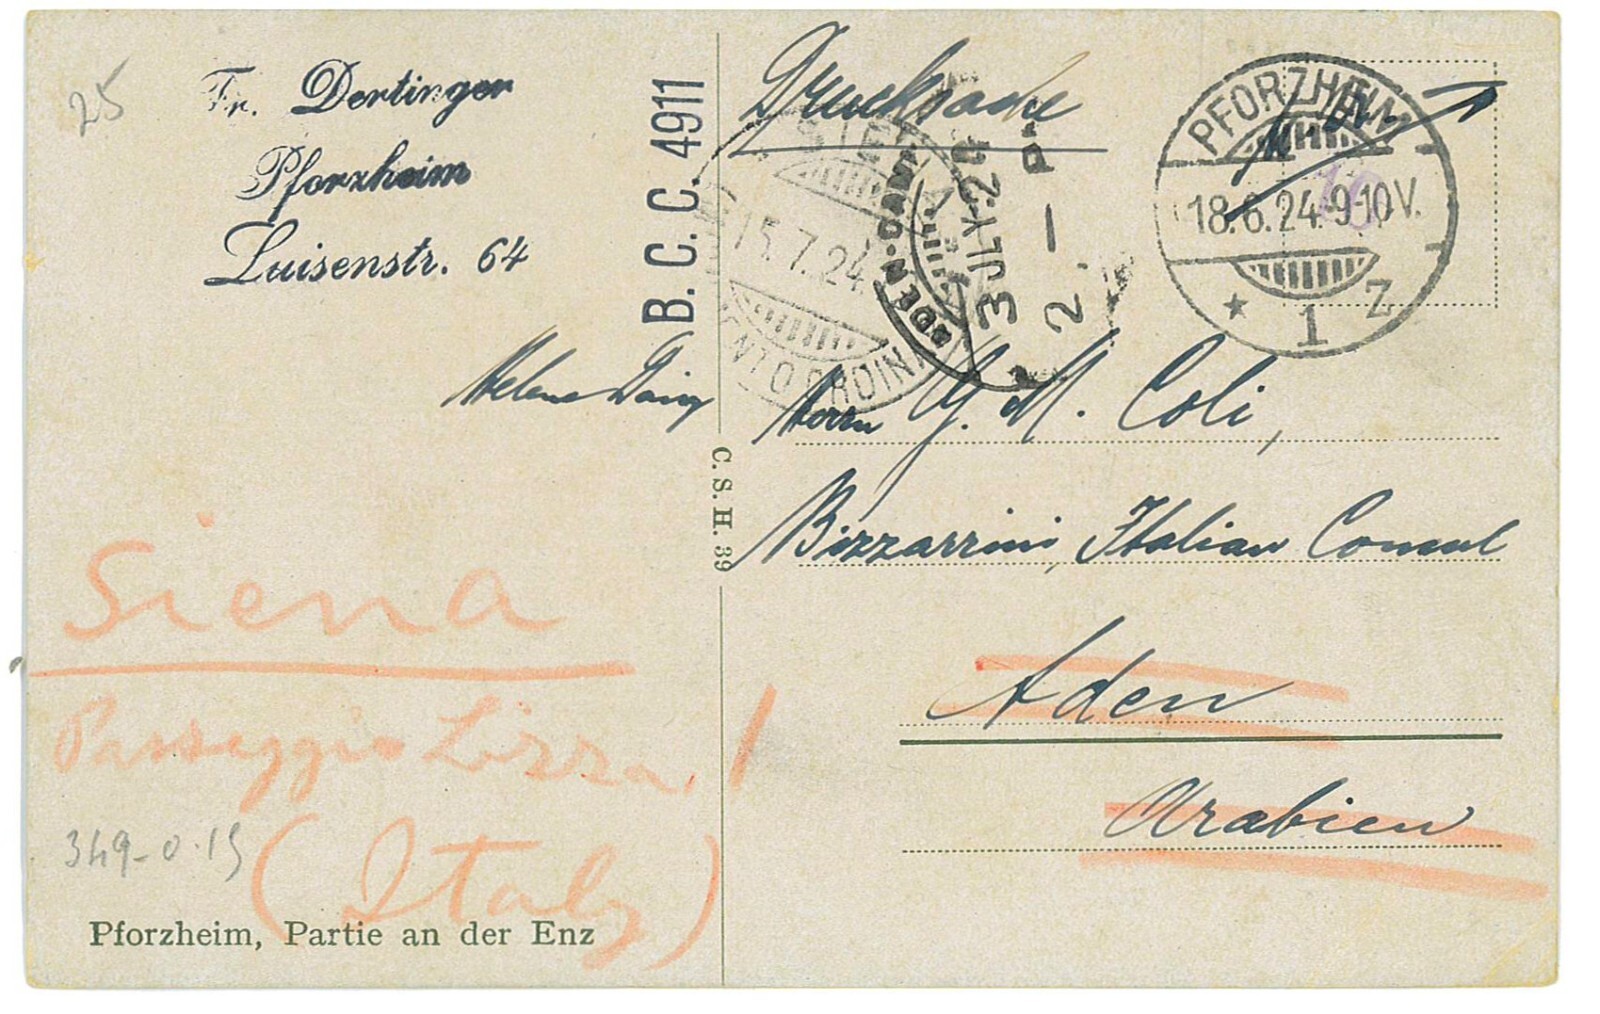 25
Fr. Dertinger
Pforzheim
Luisenstr. 64
Helene
B. C. C. 4911
C. S. H. 39
Siena
Passeggio Lizza, 1
(Italy)
349-0.15
Pforzheim, Partie an der Enz
Drucksache
PFORZHEIM
18.6.24.9-10V.
* 1 z
SIENA
15.7.24
ADEN-CAMP
3 JLY.24
2 - P
Herrn G. M. Coli,
Bizzarrini, Italian Consul
Aden
Arabien